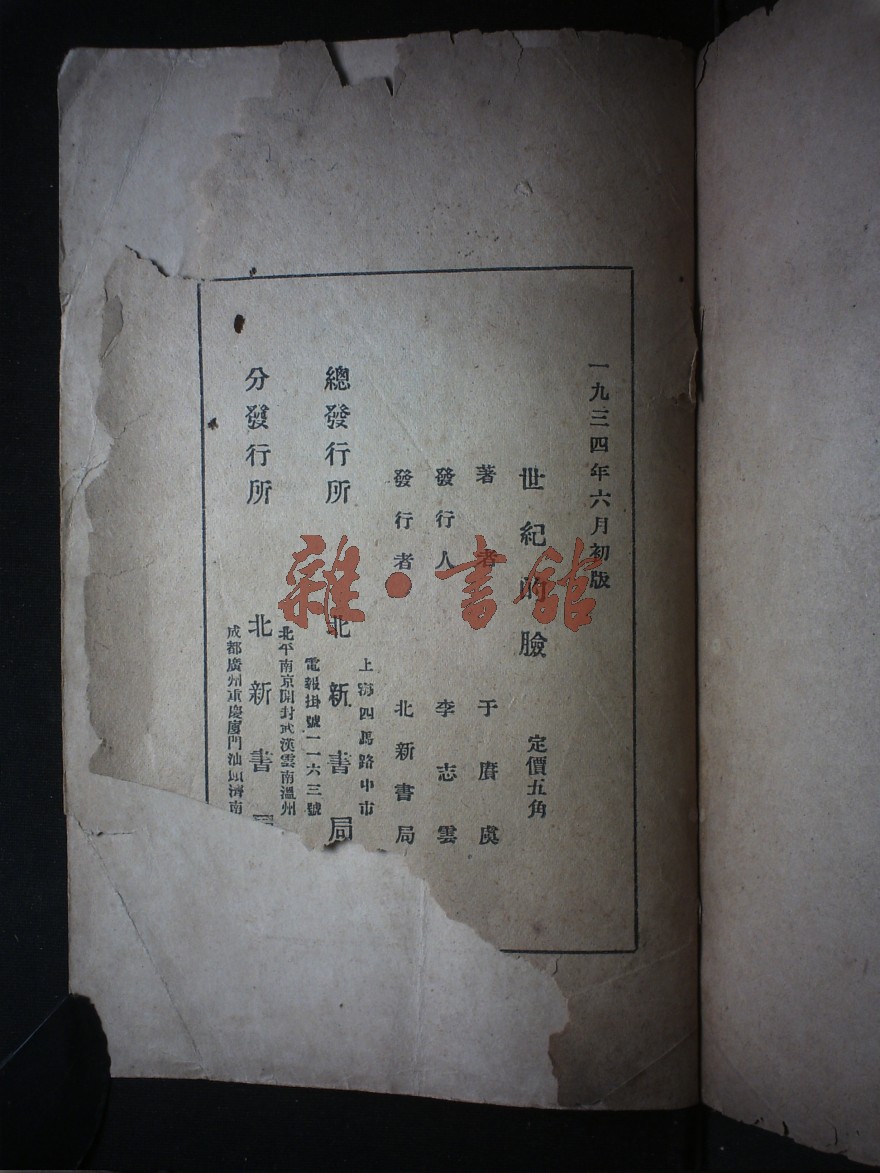 一九三四年六月初版
世紀的臉 定價五角
著者 于賡虞
發行人 李志雲
發行者 北新書局
上海四馬路中市
總發行所 北新書局
電報掛號一一六三號
北平南京開封武漢雲南溫州
分發行所 北新書局
成都廣州重慶廈門汕頭濟南
雜·書館